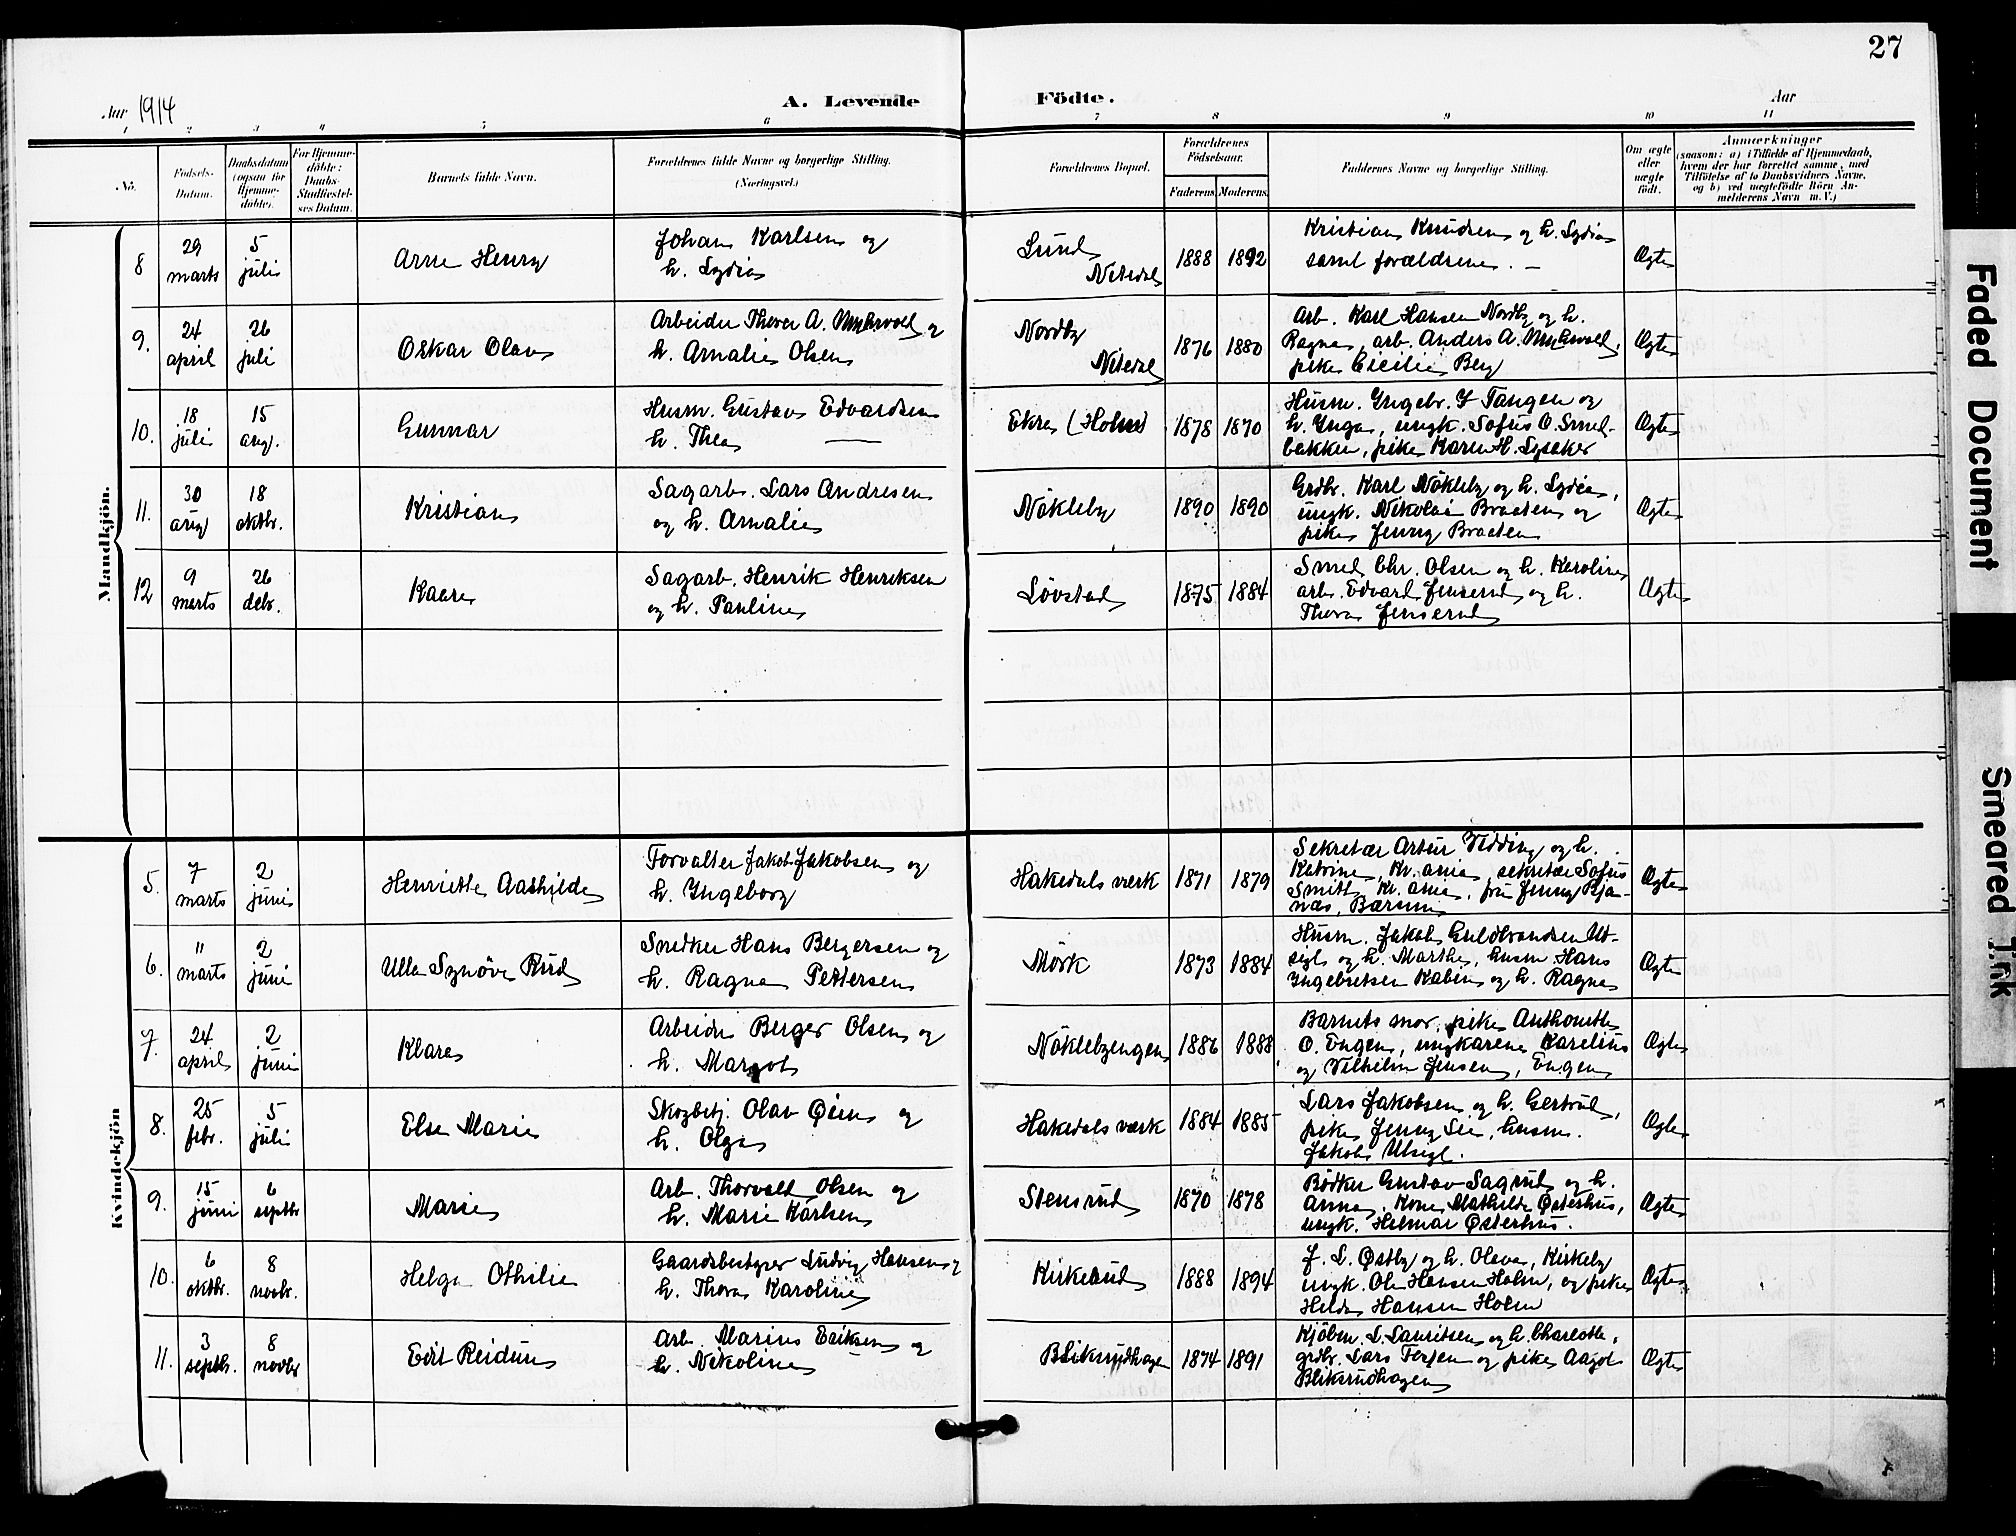 27
Aar 1914
A. Levende
Födte.
Aar
1 2 3 4 5 6 7 8 9 10 11
No.
Fødsels-Datum.
Daabsdatum (ogsaa for Hjemmedøbte).
For Hjemmedöbte: Daabs-Stadfæstelses Datum.
Barnets fulde Navn.
Forældrenes fulde Navne og borgerlige Stilling.
(Næringsvei.)
Forældrenes Bopæl.
Forældrenes Födselsaar.
Faderens. Moderens.
Faddernes Navne og borgerlige Stilling.
Om ægte eller uægte født.
Anmærkninger
(saasom: a) i Tilfælde af Hjemmedaab, hvem der har forrettet samme, med Tilföielse af to Daabsvidners Navne, og b) ved uægtefödte Börn Anmelderens Navn m. V.)
Mandkjön.
8 29 marts 5 juli Arne Henry Johan Karlsen og h. Lydia Lund Nitedal 1888 1892 Kristian Knudsen og h. Lydia samt forældrene. Ægte
9. 24 april 26 juli Oskar Olav Arbeider Thorer A. Myhrvold og h. Amalie Olsen Nordby Nitedal 1876 1880 Arb. Karl Hansen Nordby og h. Ragna, arb. Anders A. Myhrvold, pike Cicilie Berg Ægte
10. 18 juli 15 aug. Gunnar Husm. Gustav Edvardsen h. Thea Ekra (Holm) 1878 1870 Husm. Yngebr. J Tangen og h. Ynga, ungk. Sofus O. Smedbakken, pike Karen H. Lysaker Ægte
11. 30 aug 18 oktbr. Kristian Sagarb. Lars Andresen og h. Amalie Nökleby 1890 1890 Grdbr. Karl Nökleby og h. Lydia, ungk. Nikolai Braaten og pike Jenny Braaten Ægte
12 9 marts 26 debr. Kaare Sagarb. Henrik Henriksen og h. Pauline Lövstad 1875 1884 Smed Chr. Olsen og h. Karoline arb. Edvard Jenserud og h. Thora Jenserud Ægte
Kvindekjön
5. 7 marts 2 juni Henriette Aashilde Forvalter Jakob Jakobsen og h. Yngeborg Hakedals verk 1871 1879 Sekretær Artur Vidding og h. Katrine, Kr.ania, sekretær Sofus Smith Kr.ania, fru Jenny Rjanæs, Bærum Ægte
6. 11 marts 2 juni Ulla Synöve Rud Snedker Hans Bergersen og h. Ragna Pettersen Mörk 1873 1884 Husm. Jakob Guldbrandsen Utsigt og h. Marthe, husm Hans Yngebretsen Kabin og h. Ragna Ægte
7. 24 april 2 juni Klara Arbeider Berger Olsen og h. Margot Nöklebyengen 1886 1888 Barnets mor, pike Anthonette O. Engen, ungkarene Karelius og Vilhelm Jensen, Engen Ægte
8. 25 febr. 5 juli Else Marie Skogbetj. Olav Øien og h. Olga Hakedals verk 1884 1885 Lars Jakobsen og h. Gertrud, pike Jenny Lie, husm. Jakob Utsigt. Ægte
9. 15 juni 6 septbr Marie Arb. Thorvald Olsen og h. Marie Karlsen Stensrud 1870 1878 Bödker Gustav Sagrud og h. Anna, Kone Mathilde Østerhus, ungk. Helmar Østerhus. Ægte
10. 6 oktbr. 8 novbr. Helga Othilie Gaardsbestyrer Ludvig Hansen og h. Thora Karoline Kirkerud 1888 1894 J. L. Østby og h. Olava, Kirkeby ungk. Ole Hansen Holm, og pike Helda Hansen Holm Ægte
11. 3 septbr. 8 novbr Edit Reidun Arb. Marius Eriksen og h. Nikoline Bliksrudhagen 1874 1891 Kjöbm. L. Lauritsen og h. Charlotte, grdbr. Lars Terjen og pike Aagot Bliksrudhagen Ægte
Faded Document
Smeared Ink